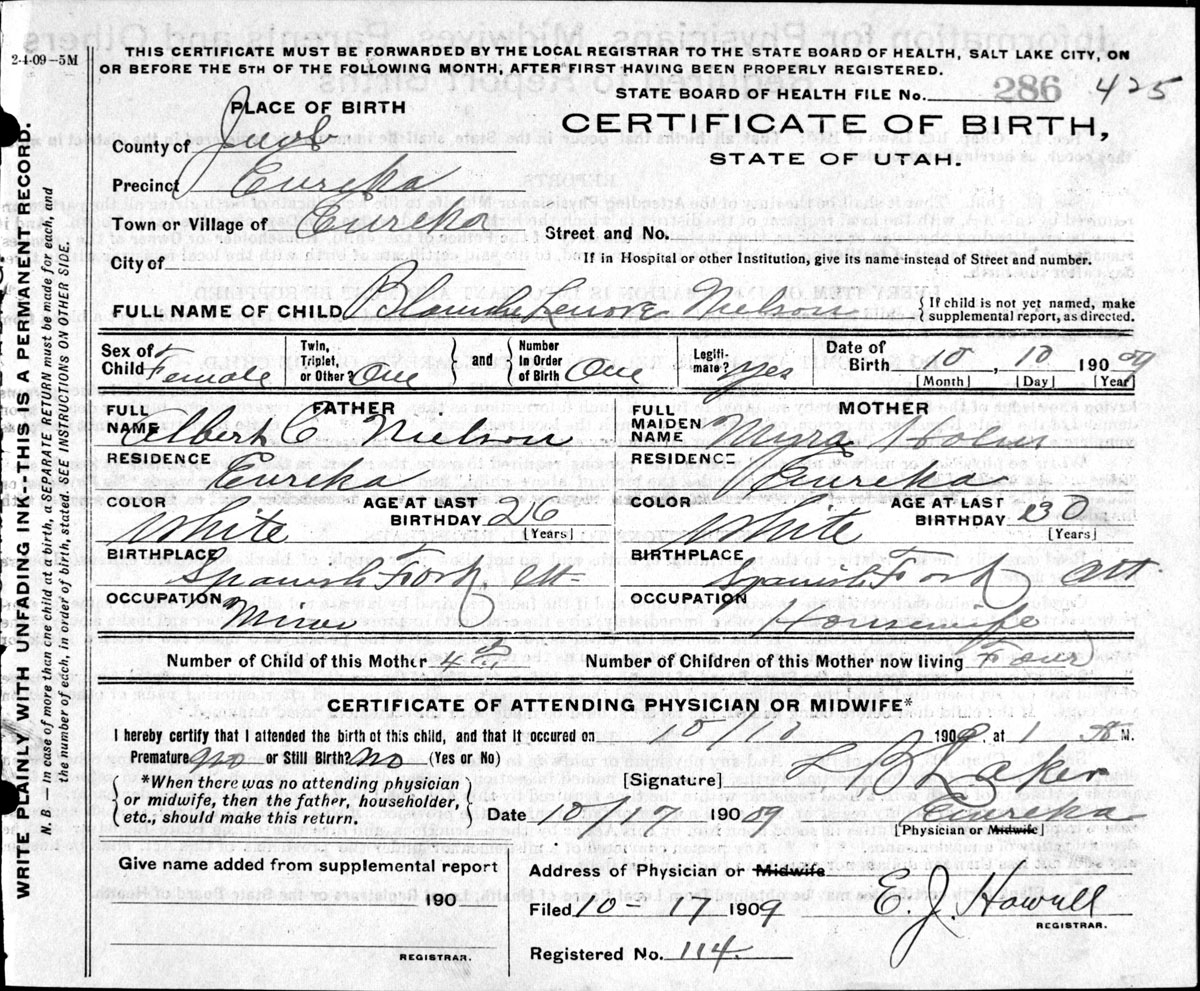 2-4-09-5M
THIS CERTIFICATE MUST BE FORWARDED BY THE LOCAL REGISTRAR TO THE STATE BOARD OF HEALTH, SALT LAKE CITY, ON
OR BEFORE THE 5TH OF THE FOLLOWING MONTH, AFTER FIRST HAVING BEEN PROPERLY REGISTERED.
STATE BOARD OF HEALTH FILE No. 286 425
PLACE OF BIRTH
CERTIFICATE OF BIRTH,
STATE OF UTAH.
County of Juab
Precinct Eureka
Town or Village of Eureka
Street and No.
City of
If in Hospital or other Institution, give its name instead of Street and number.
FULL NAME OF CHILD Blanche Lenore Nielson { If child is not yet named, make supplemental report, as directed.
Sex of Child Female
Twin, Triplet, or Other? One } and { Number in Order of Birth One
Legiti-mate? Yes
Date of Birth 10, 10 1909
[Month] [Day] [Year]
FATHER
FULL NAME Albert C. Nielson
RESIDENCE Eureka
COLOR White AGE AT LAST BIRTHDAY 26 [Years]
BIRTHPLACE Spanish Ford, Ut
OCCUPATION Miner
MOTHER
FULL MAIDEN NAME Myra
RESIDENCE Eureka
COLOR White AGE AT LAST BIRTHDAY 30 [Years]
BIRTHPLACE Spanish Ford Ut.
OCCUPATION Housewife
Number of Child of this Mother 4th
Number of Children of this Mother now living Four
CERTIFICATE OF ATTENDING PHYSICIAN OR MIDWIFE*
I hereby certify that I attended the birth of this child, and that it occured on 10/10 1909, at 1 M.
Premature? No or Still Birth? No (Yes or No)
*When there was no attending physician
or midwife, then the father, householder,
etc., should make this return.
[Signature] Laker
Date 10/17 1909 Eureka
[Physician or Midwife]
Give name added from supplemental report
190
REGISTRAR.
Address of Physician or Midwife
Filed 10-17 1909 E. J. Howell
REGISTRAR.
Registered No. 114.
WRITE PLAINLY WITH UNFADING INK--THIS IS A PERMANENT RECORD.
N. B.—In case of more than one child at a birth, a SEPARATE RETURN must be made for each, and
the number of each, in order of birth, stated. SEE INSTRUCTIONS ON OTHER SIDE.